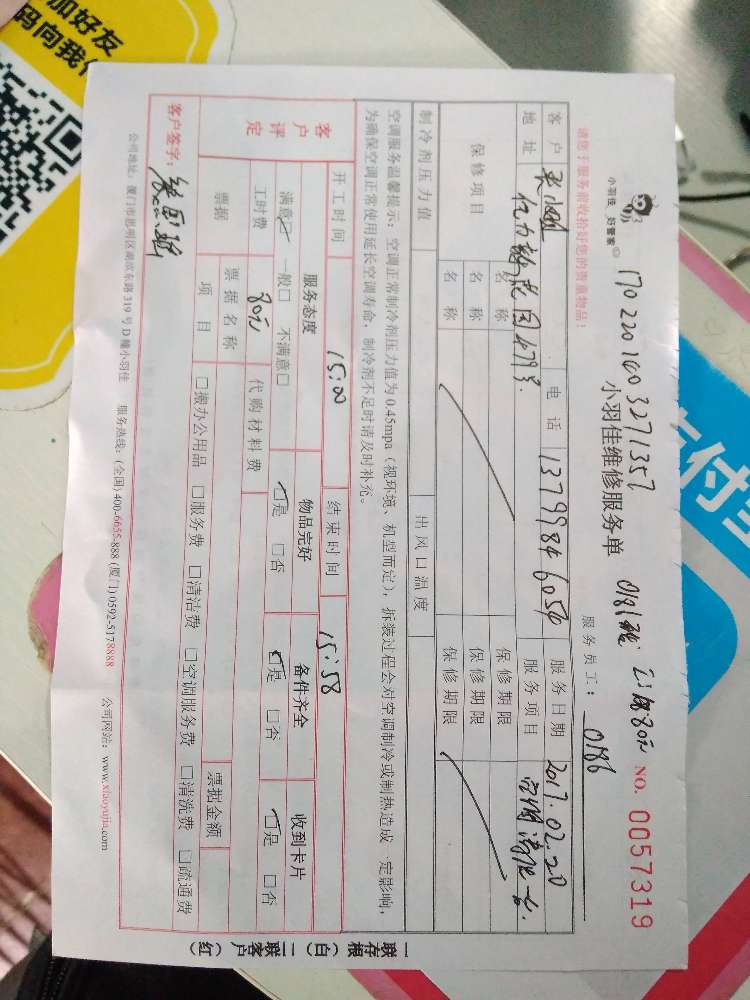 加好友
码向我付
支付宝
小羽佳 好管家
1702201003271357
小羽佳维修服务单
NO. 0057319
请您于服务前收拾好您的贵重物品!
服务员工: 0186
客户 电话 13799846054 服务日期 2017.02.20
地址 亿力静花园 479号 服务项目 空调清洗一台.
保修项目 名称 保修期限
名称 保修期限
名称 保修期限
制冷剂压力值 出风口温度
空调服务温馨提示: 空调正常制冷剂压力值为0.45mpa (视环境、机型而定), 拆装过程会对空调制冷或制热造成一定影响,
为确保空调正常使用延长空调寿命, 制冷剂不足时请及时补充。
开工时间 15:00 结束时间 15:58
客户评定 服务态度 物品完好 备件齐全 收到卡片
满意☑ 一般□ 不满意□ ☑是 □否 ☑是 □否 ☑是 □否
工时费 80元 代购材料费
票据 票据名称 票据金额
项目 □搬办公用品 □服务费 □清洁费 □空调服务费 □清洗费 □疏通费
客户签字:
公司地址: 厦门市思明区湖滨东路319号D幢小羽佳 服务热线: (全国) 400-6655-888 (厦门) 0592-5178888 公司网站: www.xiaoyujia.com
一联存根(白) 二联客户(红)